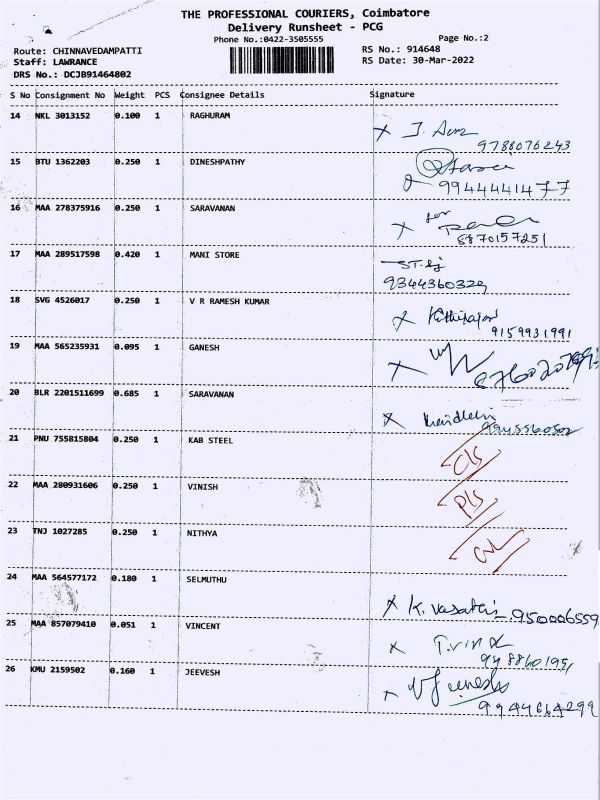 THE PROFESSIONAL COURIERS, Coimbatore
Delivery Runsheet - PCG
Phone No.:0422-3505555 Page No.:2
Route: CHINNAVEDAMPATTI RS No.: 914648
Staff: LAWRANCE RS Date: 30-Mar-2022
DRS No.: DCJB91464802
S No Consignment No Weight PCS Consignee Details Signature
14 NKL 3013152 0.100 1 RAGHURAM
9788076243
15 BTU 1362203 0.250 1 DINESHPATHY
9944441477
16 MAA 278375916 0.250 1 SARAVANAN
8870157251
17 MAA 289517598 0.420 1 MANI STORE
9344360329
18 SVG 4526017 0.250 1 V R RAMESH KUMAR
9159931991
19 MAA 565235931 0.095 1 GANESH
20 BLR 2201511699 0.685 1 SARAVANAN
21 PNU 755815804 0.250 1 KAB STEEL
22 MAA 280931606 0.250 1 VINISH
23 TNJ 1027285 0.250 1 NITHYA
24 MAA 564577172 0.180 1 SELMUTHU
X K. 950006559
25 MAA 857079410 0.051 1 VINCENT
X
26 KMU 2159502 0.160 1 JEEVESH
9944664299